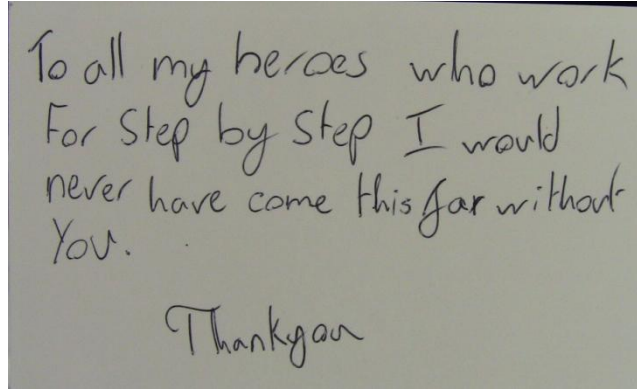 To all my heroes who work
For Step by Step I would
never have come this far without
You.
Thankyou